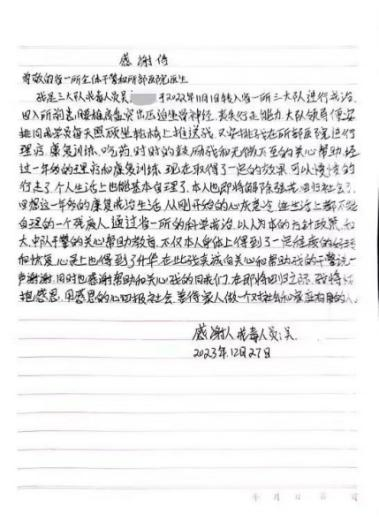 感谢信
尊敬的省一所全体干警和所部医院医生
我是三大队戒毒人员吴 于2022年11月1日转入省一所三大队进行戒治。
因入所前患腰椎间盘突出压迫坐骨神经,丧失行走能力大队领导便安
排同戒学员每天照顾坐轮椅上推送我 又安排我在所部医院进行
理疗 康复训练、吃药,时时的鼓励我和无微不至的关心帮助,经
过一年多的理疗和康复训练 现在取得了一定的效果,可以慢慢的
行走了,个人生活上也能基本自理了,本人也即将解除强戒回归社会了。
回想这一年多的康复戒治生活,从刚开始的心灰意冷,连生活上都不能
自理的一个残疾人,通过省一所的科学戒治,以人为本的方针政策,和
大、中队干警的关心帮助教育,不仅本人身体上得到了一定程度的好转
和恢复,心灵上也得到了升华,在此我真诚向关心和帮助我的干警说一
声谢谢,同时也感谢帮助和关心我的同戒们,在即将回归之际,我将
抱感恩,用感恩的心回报社会,善待家人做一个对社会和家庭有用的人。
感谢人 戒毒人员:吴
2023年12月27日
年 月 日 第 页